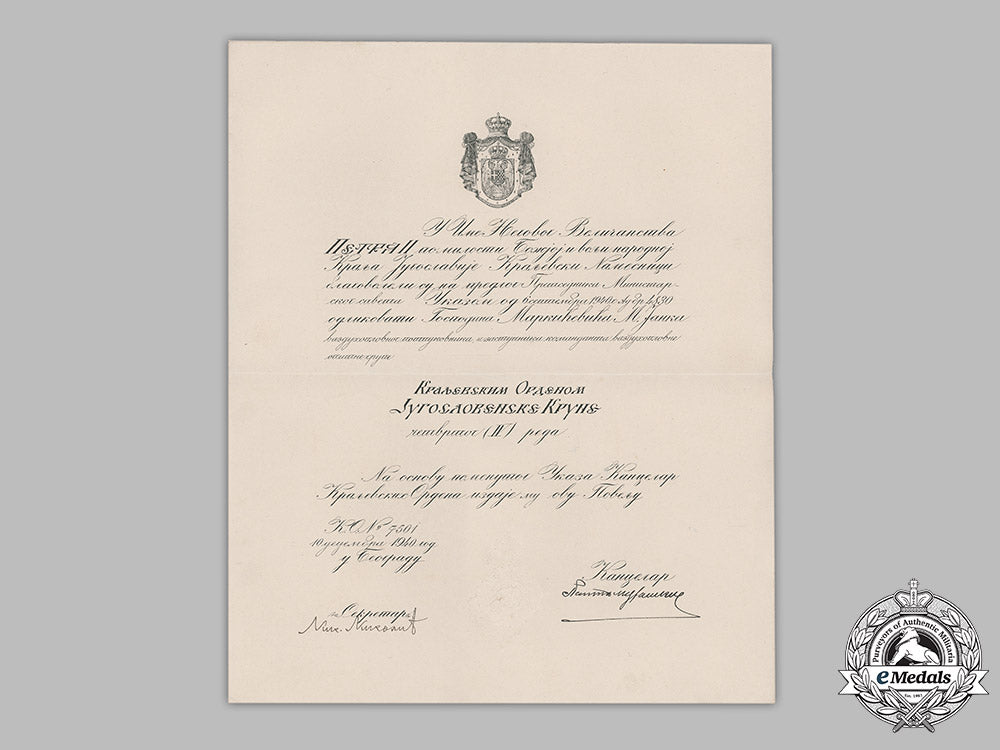 У Име Његовог Величанства
ПЕТРА II, по милости Божјој и вољи народној
Краља Југославије Краљевски Намесници
благоволели су на предлог Претседника Министар-
ског савета Указом од 6 септембра 1940 г.
одликовати Господина Маркићевића М. Јанка
ваздухопловног потпуковника, заступника команданта ваздухопловне
Краљевским Орденом
Југословенске Круне
четвртог (IV) реда
На основу поменутог Указа Канцелар
Краљевских Ордена издаје му ову Повељу
К.О.№ 7501
10 децембра 1940 год
у Београду
Канцелар
Секретар
Purveyors of Authentic Militaria
eMedals